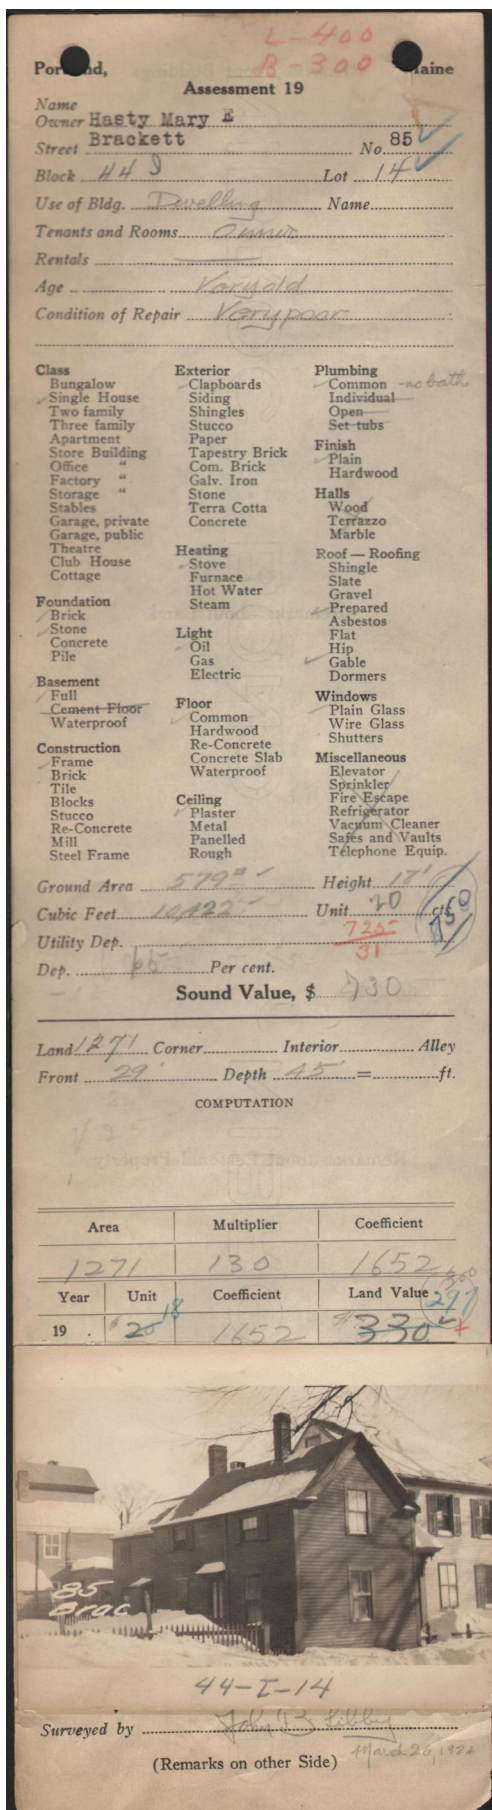 L-400
B-300
Portland, Maine
Assessment 19
Name
Owner Hasty Mary E
Street Brackett No. 85
Block 44 I Lot 14
Use of Bldg. Dwelling Name
Tenants and Rooms Owner
Rentals
Age Very old
Condition of Repair Very poor
Class
Bungalow
Single House
Two family
Three family
Apartment
Store Building
Office "
Factory "
Storage "
Stables
Garage, private
Garage, public
Theatre
Club House
Cottage
Foundation
Brick
Stone
Concrete
Pile
Basement
Full
Cement Floor
Waterproof
Construction
Frame
Brick
Tile
Blocks
Stucco
Re-Concrete
Mill
Steel Frame
Exterior
Clapboards
Siding
Shingles
Stucco
Paper
Tapestry Brick
Com. Brick
Galv. Iron
Stone
Terra Cotta
Concrete
Heating
Stove
Furnace
Hot Water
Steam
Light
Oil
Gas
Electric
Floor
Common
Hardwood
Re-Concrete
Concrete Slab
Waterproof
Ceiling
Plaster
Metal
Panelled
Rough
Plumbing
Common -no bath
Individual
Open
Set tubs
Finish
Plain
Hardwood
Halls
Wood
Terrazzo
Marble
Roof — Roofing
Shingle
Slate
Gravel
Prepared
Asbestos
Flat
Hip
Gable
Dormers
Windows
Plain Glass
Wire Glass
Shutters
Miscellaneous
Elevator
Sprinkler
Fire Escape
Refrigerator
Vacuum Cleaner
Safes and Vaults
Telephone Equip.
Ground Area 579 Height 18'
Cubic Feet 10422 Unit 20 cts. 750
Utility Dep. 725
31
Dep. 65 Per cent.
Sound Value, $ 730
Land 1271 Corner Interior Alley
Front 29' Depth 45' = ft.
COMPUTATION
Area Multiplier Coefficient
1271 130 1652
300
Year Unit Coefficient Land Value 297
18
19 . $20 1652 $330
85
Brac
44-I-14
Surveyed by John B Libby
March 26, 1924
(Remarks on other Side)